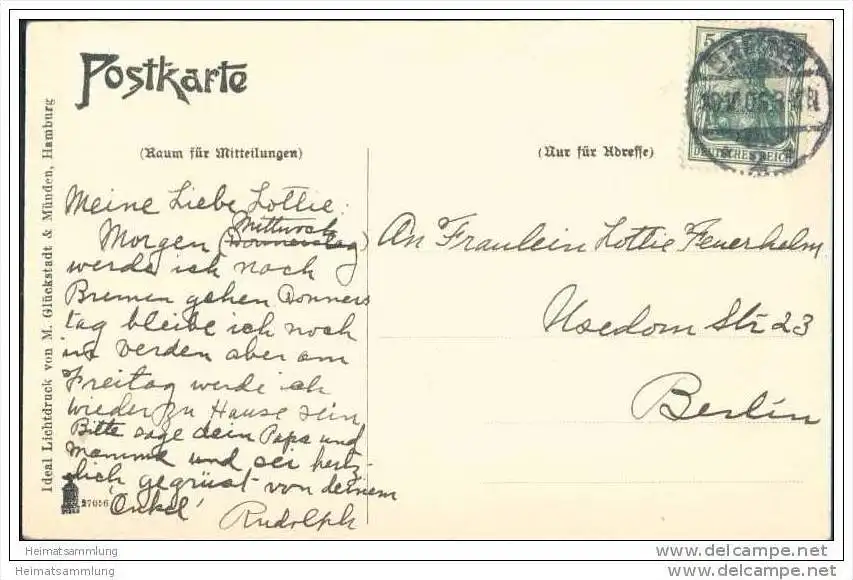 Postkarte
(Raum für Mitteilungen)
(Nur für Adresse)
DEUTSCHES REICH
Ideal Lichtdruck von M. Glückstadt & Münden, Hamburg
Meine Liebe Lottie:
Mittwoch
Morgen (Donnerstag)
werde ich nach
Bremen gehen Donners
tag bleibe ich noch
in Verden aber am
Freitag werde ich
wieder zu Hause sein
Bitte sage dein Papa und
Mamma und sei herz-
lich gegrüst von deinem
'Onkel' Rudolph
An Fraulein Lottie Feuerhelm
Usedom Str 23
Berlin
Heimatsammlung
Heimatsammlung
www.delcampe.net
www.delcampe.net